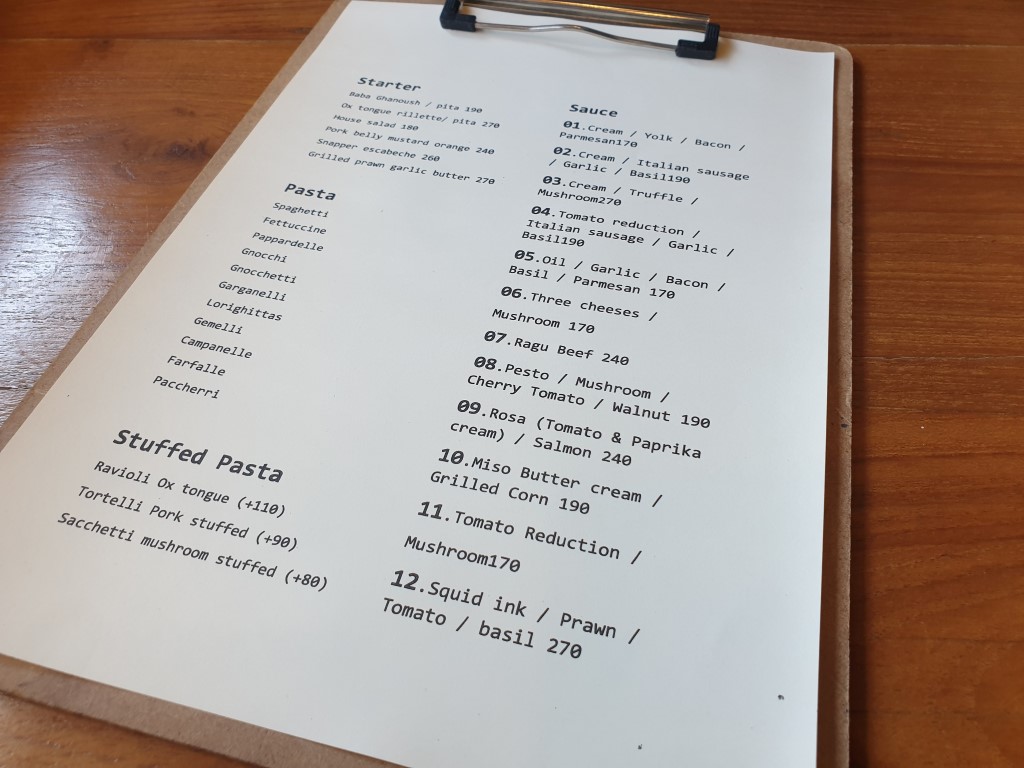 Starter
Baba Ghanoush / pita 190
Ox tongue rillette/ pita 270
House salad 180
Pork belly mustard orange 240
Snapper escabeche 260
Grilled prawn garlic butter 270
Pasta
Spaghetti
Fettuccine
Pappardelle
Gnocchi
Gnocchetti
Garganelli
Lorighittas
Gemelli
Campanelle
Farfalle
Paccherri
Stuffed Pasta
Ravioli Ox tongue (+110)
Tortelli Pork stuffed (+90)
Sacchetti mushroom stuffed (+80)
Sauce
01.Cream / Yolk / Bacon /
Parmesan170
02.Cream / Italian sausage
/ Garlic / Basil190
03.Cream / Truffle /
Mushroom270
04.Tomato reduction /
Italian sausage / Garlic /
Basil190
05.Oil / Garlic / Bacon /
Basil / Parmesan 170
06.Three cheeses /
Mushroom 170
07.Ragu Beef 240
08.Pesto / Mushroom /
Cherry Tomato / Walnut 190
09.Rosa (Tomato & Paprika
cream) / Salmon 240
10.Miso Butter cream /
Grilled Corn 190
11.Tomato Reduction /
Mushroom170
12.Squid ink / Prawn /
Tomato / basil 270